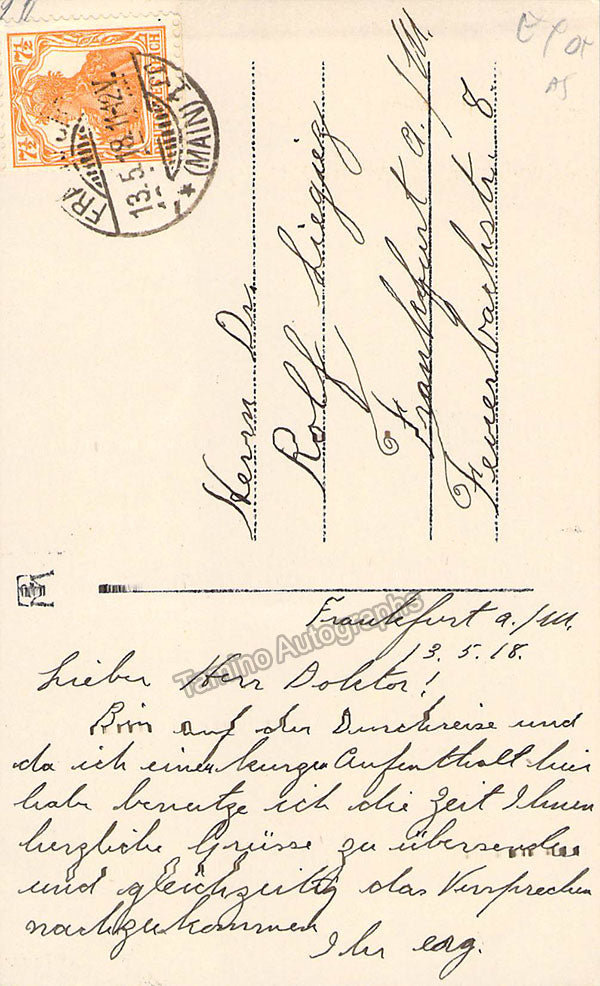 Herrn Dr.
Rolf Liegniez
Frankfurt a./M.
Feuerbachstr. 8
7½ 7½
REICH
13.5.18. 11-12V.
(MAIN) 1
Tamino Autographs
Frankfurt a./M.
13.5.18.
Lieber Herr Doktor!
Bin auf der Durchreise und
da ich einen kurzen Aufenthalt hier
habe benutze ich die Zeit Ihnen
herzliche Grüsse zu übersenden
und gleichzeitig das Versprechen
nachzukommen
Ihr erg.